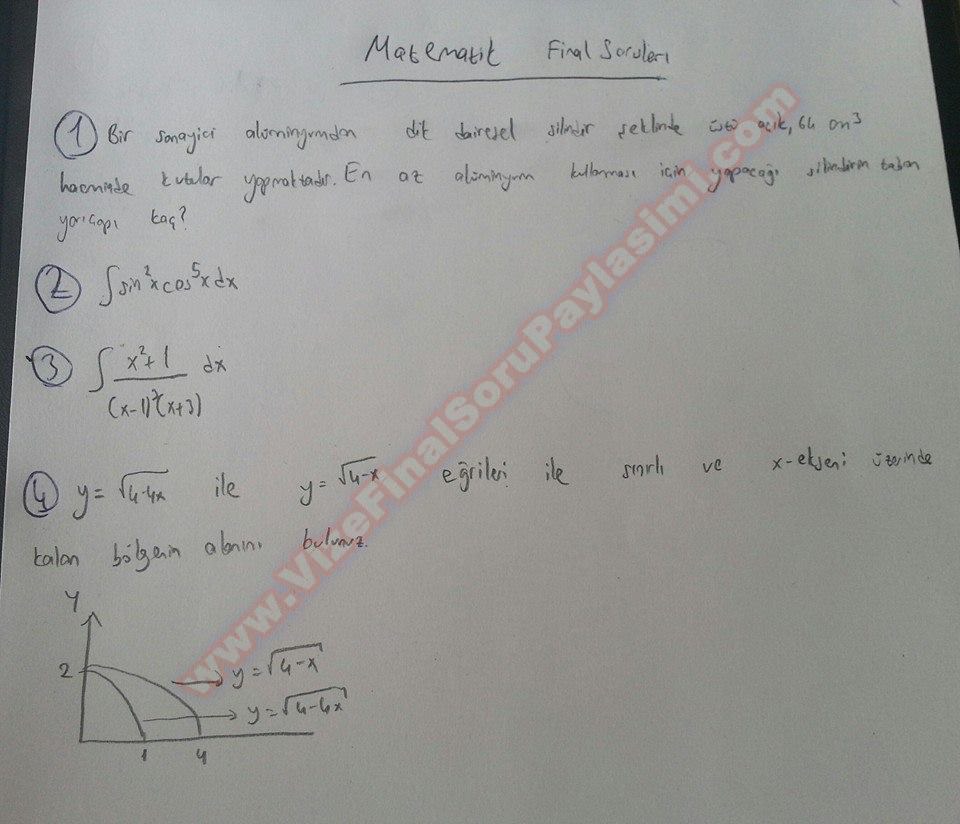 Matematik Final Soruları
1 Bir sanayici alüminyumdan dik dairesel silindir şeklinde üstü açık, 64 cm³
hacminde kutular yapmaktadır. En az alüminyum kullanması için yapacağı silindirin taban
yarıçapı kaç?
2 ∫sin²x cos⁵x dx
3 ∫ x²+1 / (x-1)²(x+3) dx
4 y = √4-4x ile y = √4-x eğrileri ile sınırlı ve x-ekseni üzerinde
kalan bölgenin alanını bulunuz.
y
2
→ y = √4-x
→ y = √4-4x
1 4
www.VizeFinalSoruPaylasimi.com